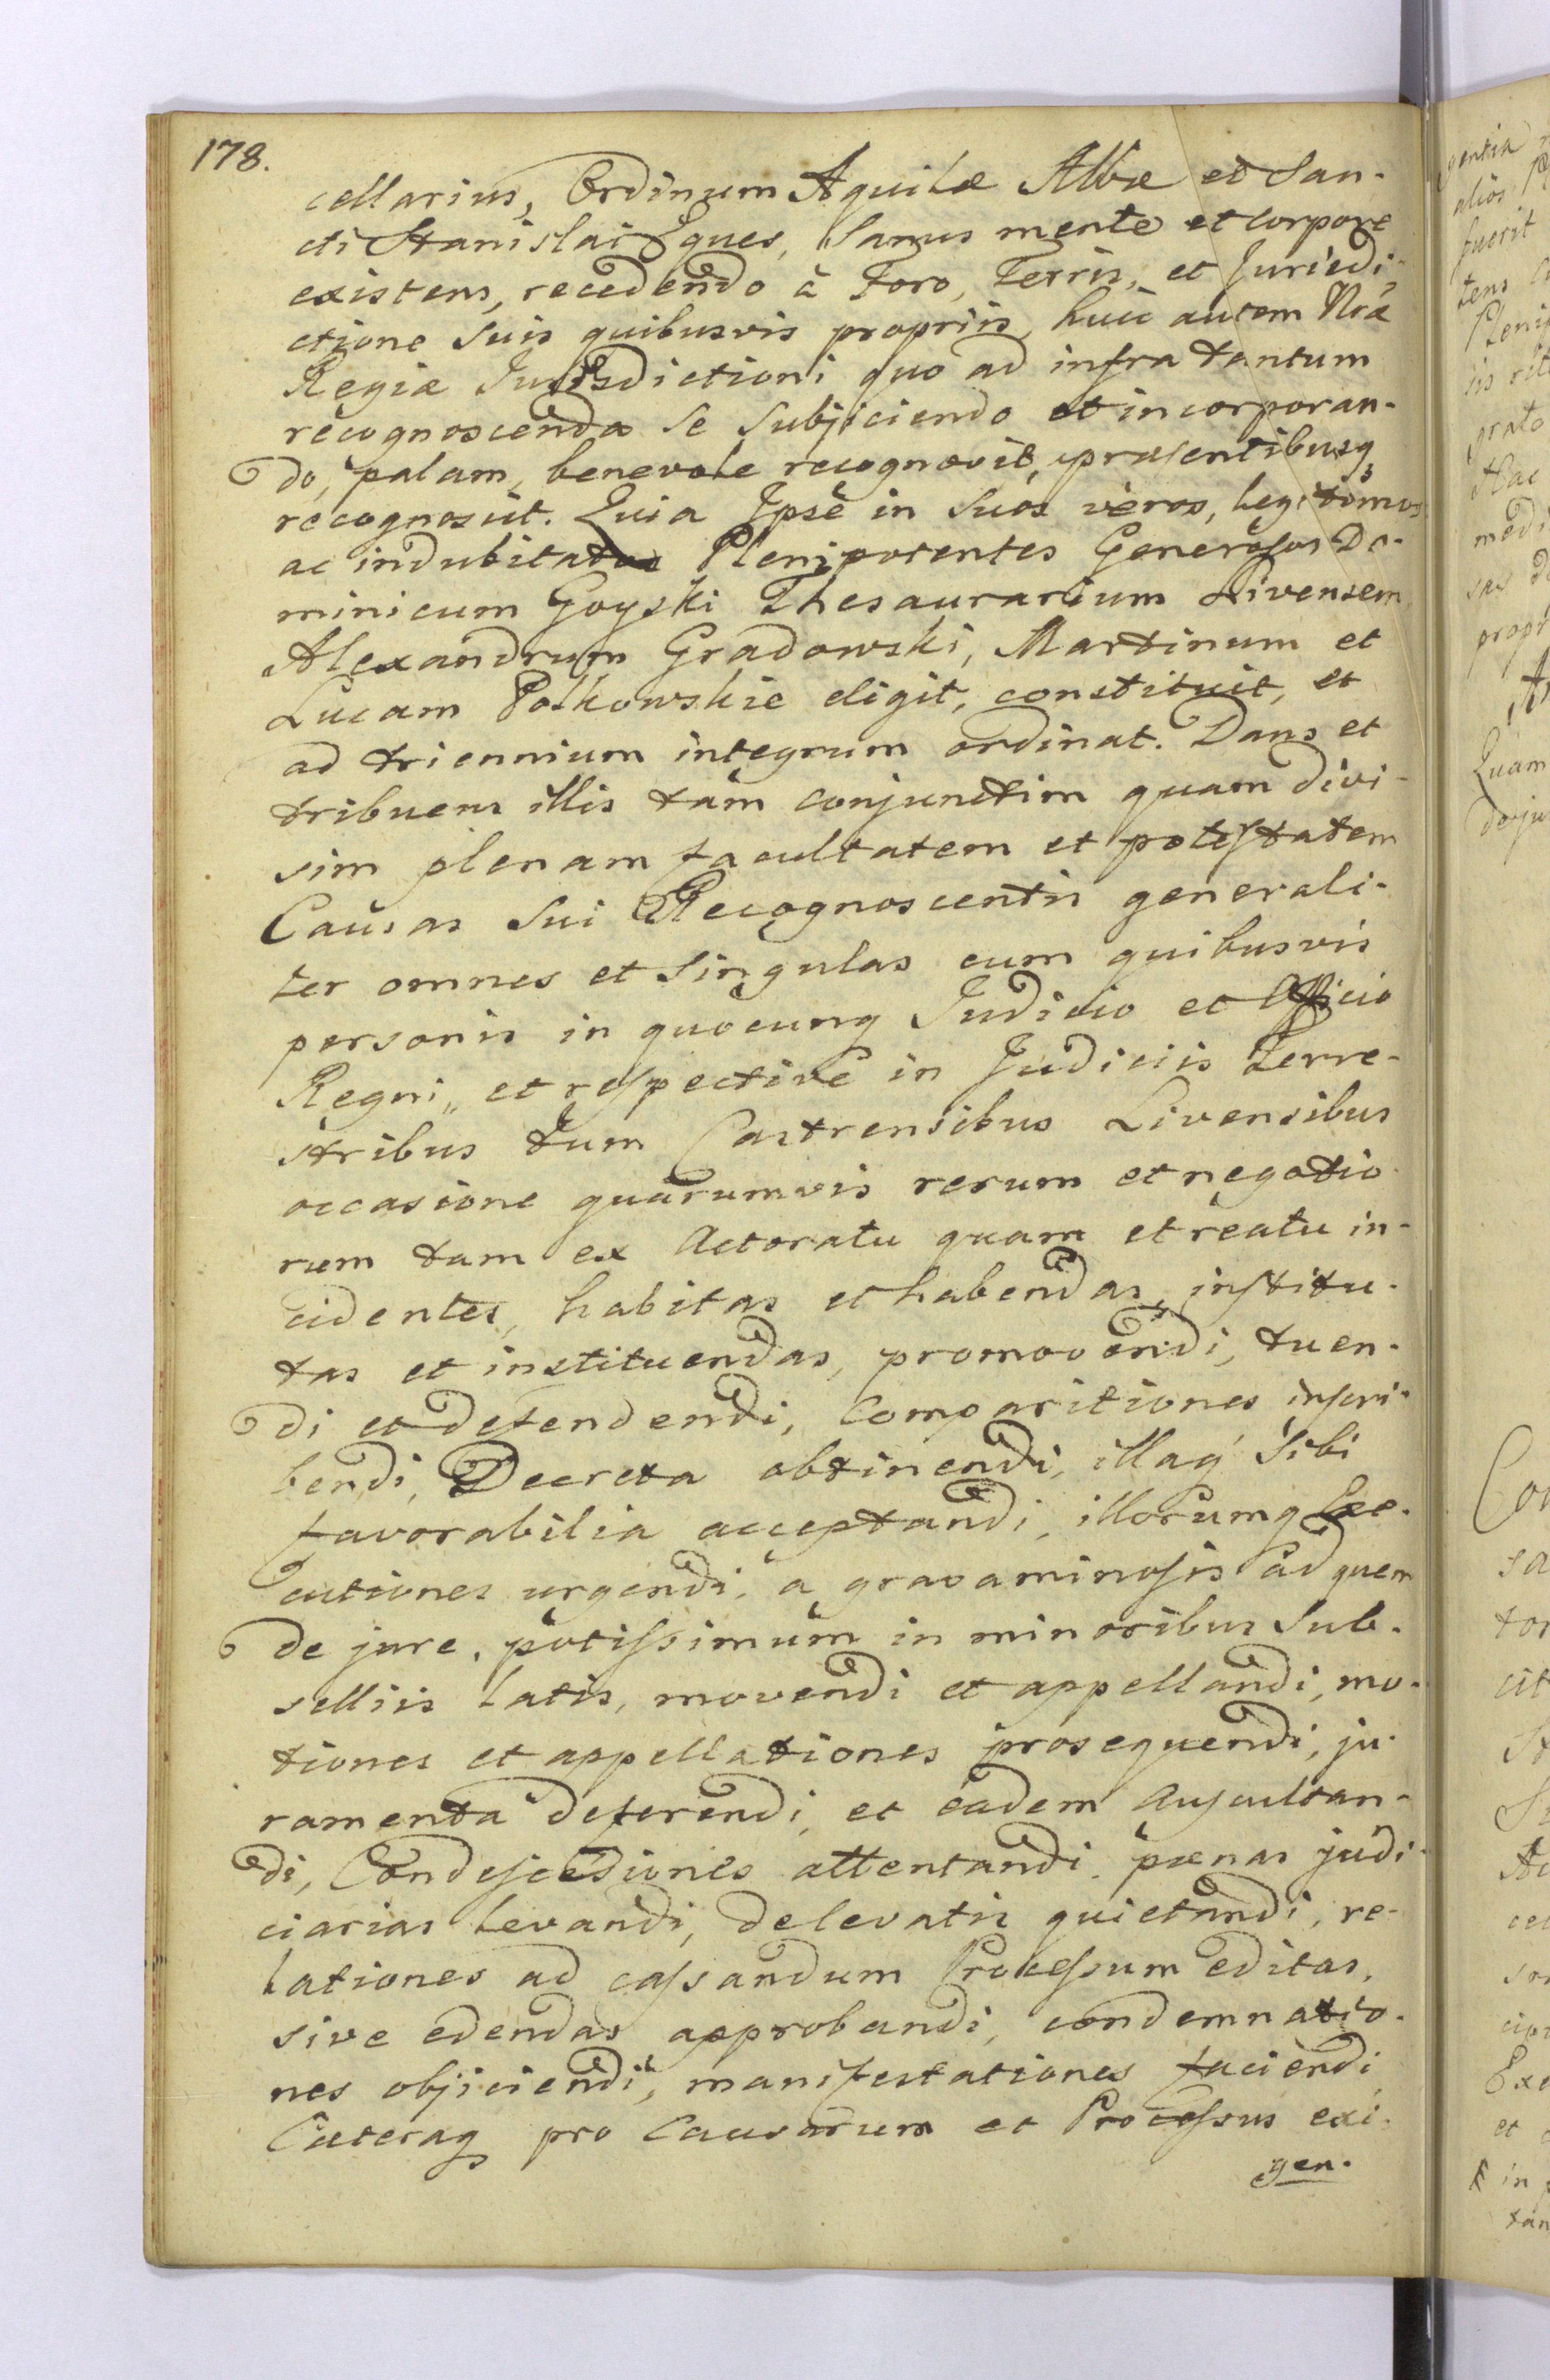 178.
cellarius, Ordinum Aquilæ Albæ et San-
cti Stanislai Eques, Sanus mente et corpore
existens, recedendo à Foro, Terris, et Jurisdi-
ctione suis quibusvis propriis, huic autem Nræ
Regiæ Jurisdictioni quo ad infra tantum
recognoscenda se Subjiciendo et incorporan-
do, palam, benevole recognovit, præsentibusq
recognoscit. Quia Ipse in Suos veros, legitimos
ac indubitatos Plenipotentes Generosos Do-
minicum Goyski Thesaurarium Livensem
Alexandrum Gradowski, Martinum et
Lucam Polkowskie eligit, constituit, et
ad triennium integrum ordinat. Dans et
tribuens illis tàm conjunctim quam divi-
sim plenam facultatem et potestatem
Causas Sui Recognoscentis generali-
ter omnes et Singulas cum quibusvis
personis in quocunq Judicio et Officio
Regni, et respectivè in Judiciis Terre-
stribus tum Castrensibus Livensibus
occasione quarumvis rerum et negotio
rum tam ex Actoratu quam et reatu in-
cidentes, habitas et habendas, institu-
tas et instituendas, promovendi, tuen-
di et defendendi, Comparitiones inscri-
bendi, Decreta obtinendi, illaq Sibi
favorabilia acceptandi, illorumq Exe-
cutiones urgendi, a gravaminosis ad quem
de jure, potissimum in minoribus Sub-
selliis latis, movendi et appellandi, mo-
tiones et appellationes prosequendi, ju-
ramenta deferendi, et eadem auscultan-
di, Condescensiones attentandi, pænas judi-
ciarias levandi, de levatis quietandi, re-
lationes ad cassandum Processum editas,
sive edendas approbandi, condemnatio-
nes objiciendi, manifestationes faciendi,
Cæteraq pro Causarum et Processus exi-
gen-